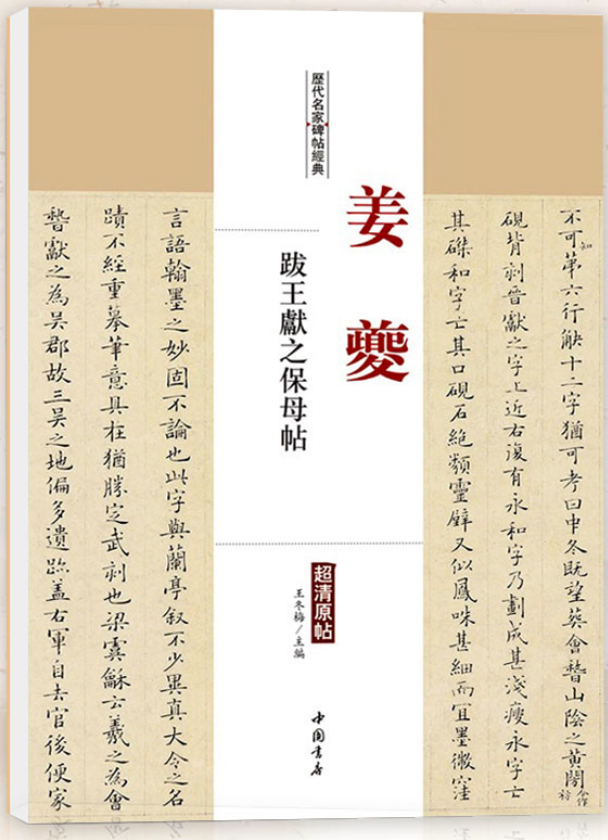 歷代名家碑帖經典
姜夔
跋王獻之保母帖
超清原帖
王冬梅/主编
中国书店
不可知苐六行觖十二字猶可考曰中冬既望葬會稽山陰之黃閍合作祊
硯背刻晉獻之字上近右復有永和字乃劃成甚淺瘦永字亡
其磔和字亡其口硯石絶類靈璧又似鳳咮甚細而宜墨微窪
言語翰墨之妙固不論也此字與蘭亭叙不少異真大令之名
蹟不經重摹筆意具在猶勝定武刻也梁虞龢云羲之為會
稽獻之為吳郡故三吳之地偏多遺跡盖右軍自去官後便家